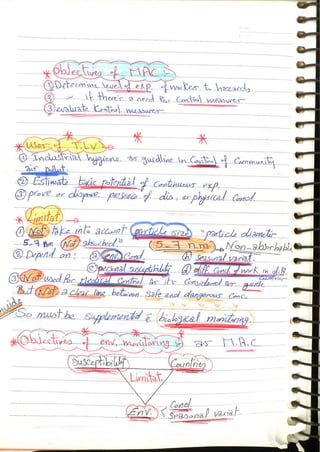 * Objectives of MAC :-
① Determine level of exp. of worker to hazards
② ~ if there's a need for Control measures
③ evaluate Control measures
* Uses of T.LV * *
① Industrial hygiene as guidline in Control of Community
air pollut.
② Estimate toxic potential of continuous exp.
③ prove or disprove presence of dis. or physical Cond.
* Limitat.
① Not take into account particle size "particle diameter
5-7 nm Not absorbed" 5-7 nm Non-absorbable
② Depend on: ⓐ env. Cond. ⓑ seasonal variat.
ⓒ personal susceptibility ⓓ diff. Cond. of work in diff. Countries
③ Not used for Medical Control as it's Considered as guide
But Not a clear line between safe and dangerous Conc.
So must be supplemented by biological monitoring.
* Objectives of env. monitoring :- as M.A.C
Susceptibility Countries
Limitat.
Env. Cond.
Seasonal variat.